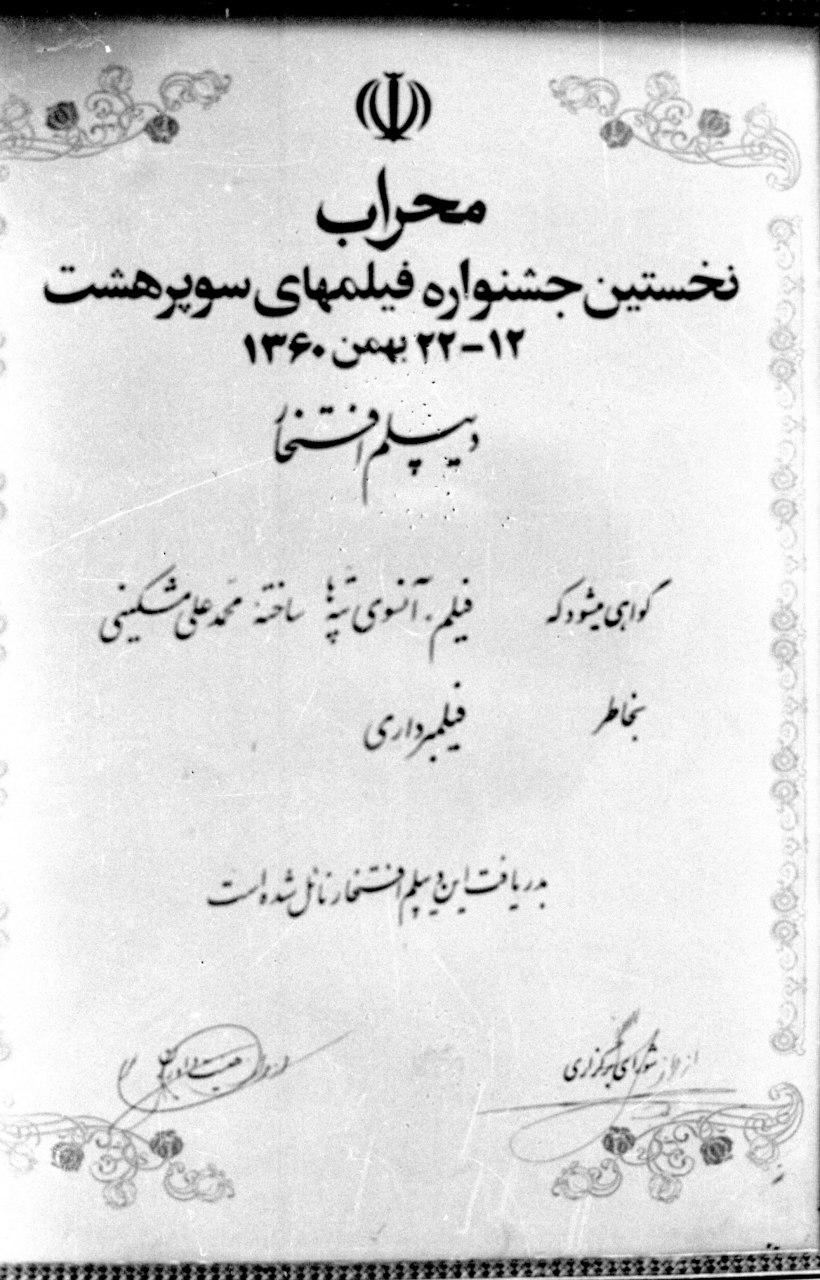 محراب
نخستین جشنواره فیلمهای سوپرهشت
۱۲-۲۲ بهمن ۱۳۶۰
دیپلم افتخار
گواهی میشود که فیلم، آنسوی تپّه‌ها ساختهٔ محمّد علی مشکینی
بخاطر فیلمبرداری
بدریافت این دیپلم افتخار نائل شده است
از طرف شورای برگزاری
هیئت داوران